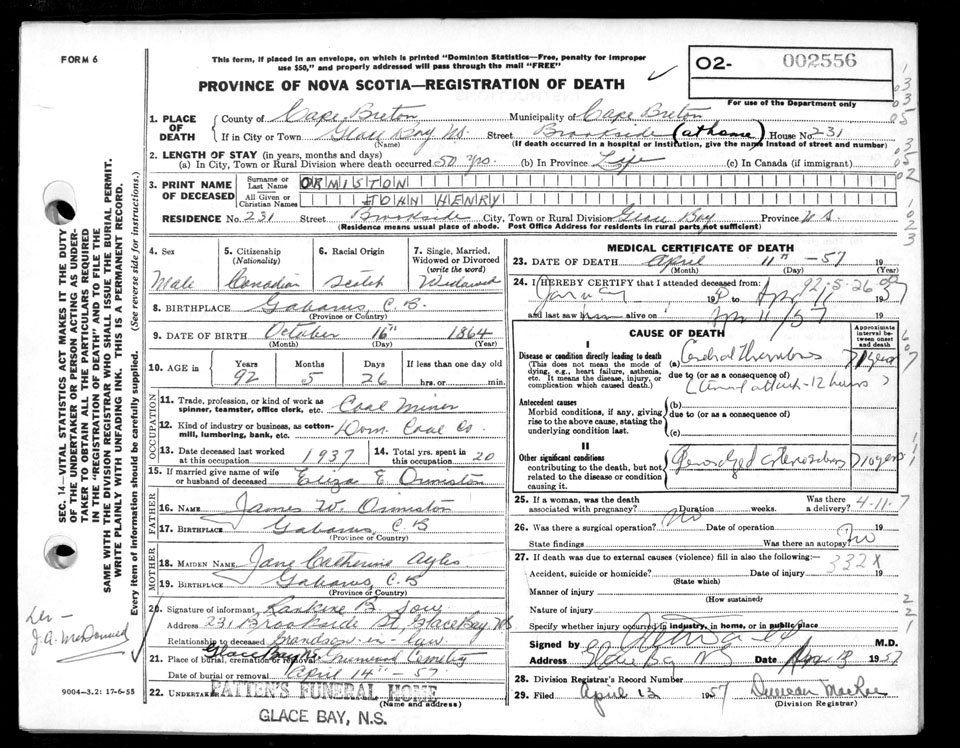 FORM 6
This form, if placed in an envelope, on which is printed "Dominion Statistics—Free, penalty for improper
use $50," and properly addressed will pass through the mail "FREE"
PROVINCE OF NOVA SCOTIA—REGISTRATION OF DEATH
O2- 002556
For use of the Department only
1. PLACE OF DEATH
County of Cape Breton Municipality of Cape Breton
If in City or Town Glace Bay N.S. Street Brookside (at home) House No 231
(Name) (If death occurred in a hospital or institution, give the name instead of street and number)
2. LENGTH OF STAY (in years, months and days)
(a) In City, Town or Rural Division where death occurred 50 yrs. (b) In Province Life (c) In Canada (if immigrant)
3. PRINT NAME OF DECEASED
Surname or Last Name ORMISTON
All Given or Christian Names JOHN HENRY
RESIDENCE No. 231 Street Brookside City, Town or Rural Division Glace Bay Province N.S.
(Residence means usual place of abode. Post Office Address for residents in rural parts not sufficient)
4. Sex Male
5. Citizenship (Nationality) Canadian
6. Racial Origin Scotch
7. Single, Married, Widowed or Divorced (write the word) Widowed
8. BIRTHPLACE Gabarus, C.B.
(Province or Country)
9. DATE OF BIRTH October 16th 1864
(Month) (Day) (Year)
10. AGE in Years 92 Months 5 Days 26 If less than one day old hrs. or min.
OCCUPATION
11. Trade, profession, or kind of work as spinner, teamster, office clerk, etc. Coal Miner
12. Kind of industry or business, as cotton-mill, lumbering, bank, etc. Dom. Coal Co.
13. Date deceased last worked at this occupation 1937
14. Total yrs. spent in this occupation 20
15. If married give name of wife or husband of deceased Eliza E Ormiston
FATHER
16. NAME James W. Ormiston
17. BIRTHPLACE Gabarus, C.B
(Province or Country)
MOTHER
18. MAIDEN NAME Jane Catherine
19. BIRTHPLACE Gabarus, C.B
(Province or Country)
20. Signature of informant Rankine B.
Address 231 Brookside St, Glace Bay NS
Relationship to deceased Grandson-in-law
21. Place of burial, cremation or removal Glace Bay NS Greenwood Cemetery
Date of burial or removal April 14th - 57
22. UNDERTAKER PATTEN'S FUNERAL HOME
(Name and address)
GLACE BAY, N.S.
MEDICAL CERTIFICATE OF DEATH
23. DATE OF DEATH April 11th -57 19
(Month) (Day) (Year)
24. I HEREBY CERTIFY that I attended deceased from: 92-5-26
19 to Apr 11 1957
and last saw him alive on Apr 11/57
CAUSE OF DEATH
Approximate interval between onset and death
I
Disease or condition directly leading to death (a) Cerebral Thrombosis
(This does not mean the mode of dying, e.g., heart failure, asthenia, etc. It means the disease, injury, or complication which caused death.)
due to (or as a consequence of)
attack - 12 hours)
Antecedent causes
Morbid conditions, if any, giving rise to the above cause, stating the underlying condition last.
(b)
due to (or as a consequence of)
(c)
II
Other significant conditions
contributing to the death, but not related to the disease or condition causing it.
Generalized arteriosclerosis 10 years
25. If a woman, was the death associated with pregnancy? Duration weeks. Was there a delivery? 4-11-7
26. Was there a surgical operation? No Date of operation 19
State findings Was there an autopsy? No
27. If death was due to external causes (violence) fill in also the following:
332X
Accident, suicide or homicide? Date of injury 19
(State which)
Manner of injury
(How sustained)
Nature of injury
Specify whether injury occurred in industry, in home, or in public place
Signed by M.D.
Address Glace Bay N S Date Apr 13 1957
28. Division Registrar's Record Number
29. Filed April 13 1957 Duncan MacRae
(Division Registrar)
SEC. 14—VITAL STATISTICS ACT MAKES IT THE DUTY
OF THE UNDERTAKER OR PERSON ACTING AS UNDER-
TAKER TO OBTAIN ALL THE PARTICULARS REQUIRED
IN THE "REGISTRATION OF DEATH" AND TO FILE THE
SAME WITH THE DIVISION REGISTRAR WHO SHALL ISSUE THE BURIAL PERMIT.
WRITE PLAINLY WITH UNFADING INK. THIS IS A PERMANENT RECORD.
Every item of information should be carefully supplied. (See reverse side for instructions.)
J.A. McDonald
9004-3.2: 17-6-55